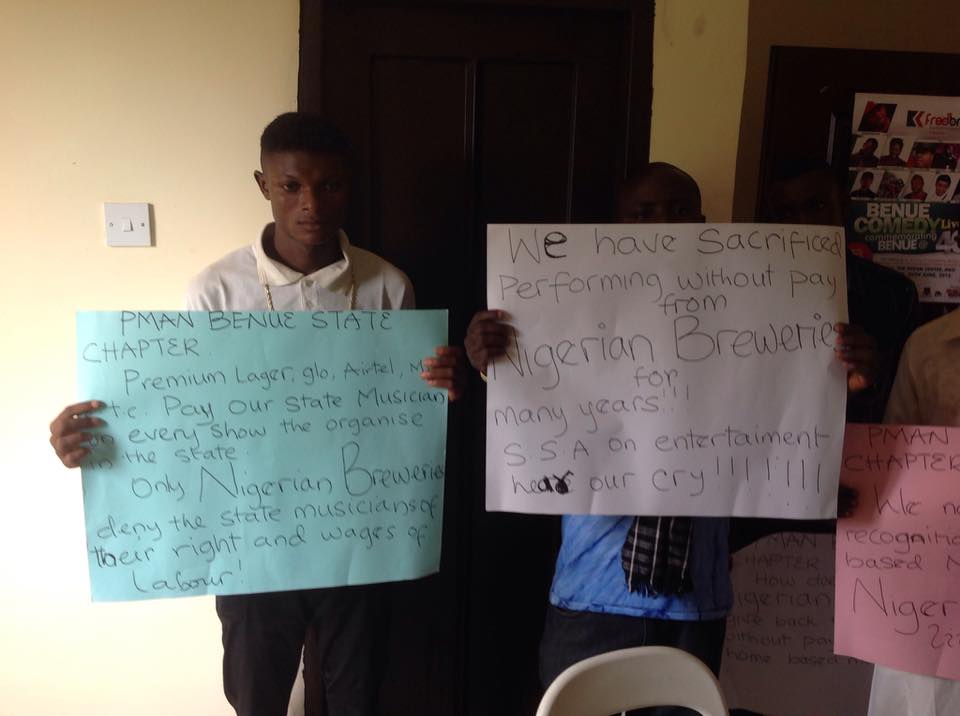 PMAN BENUE STATE
CHAPTER.
Premium Lager, glo, Airtel,
e.t.c. Pay our State Musician
on every show the organise
in the state.
Only Nigerian Breweries
deny the state musicians of
their right and wages of
Labour!
We have Sacrificed
Performing without pay
from
Nigerian Breweries
for
many years!!!
S.S.A on entertaiment
hear our cry!!!!!!!!!
PMAN
CHAPTER
We
based
Niger
CHAPTER
How
give back
without
home based
BENUE
COMEDY Live
commemorating
BENUE @